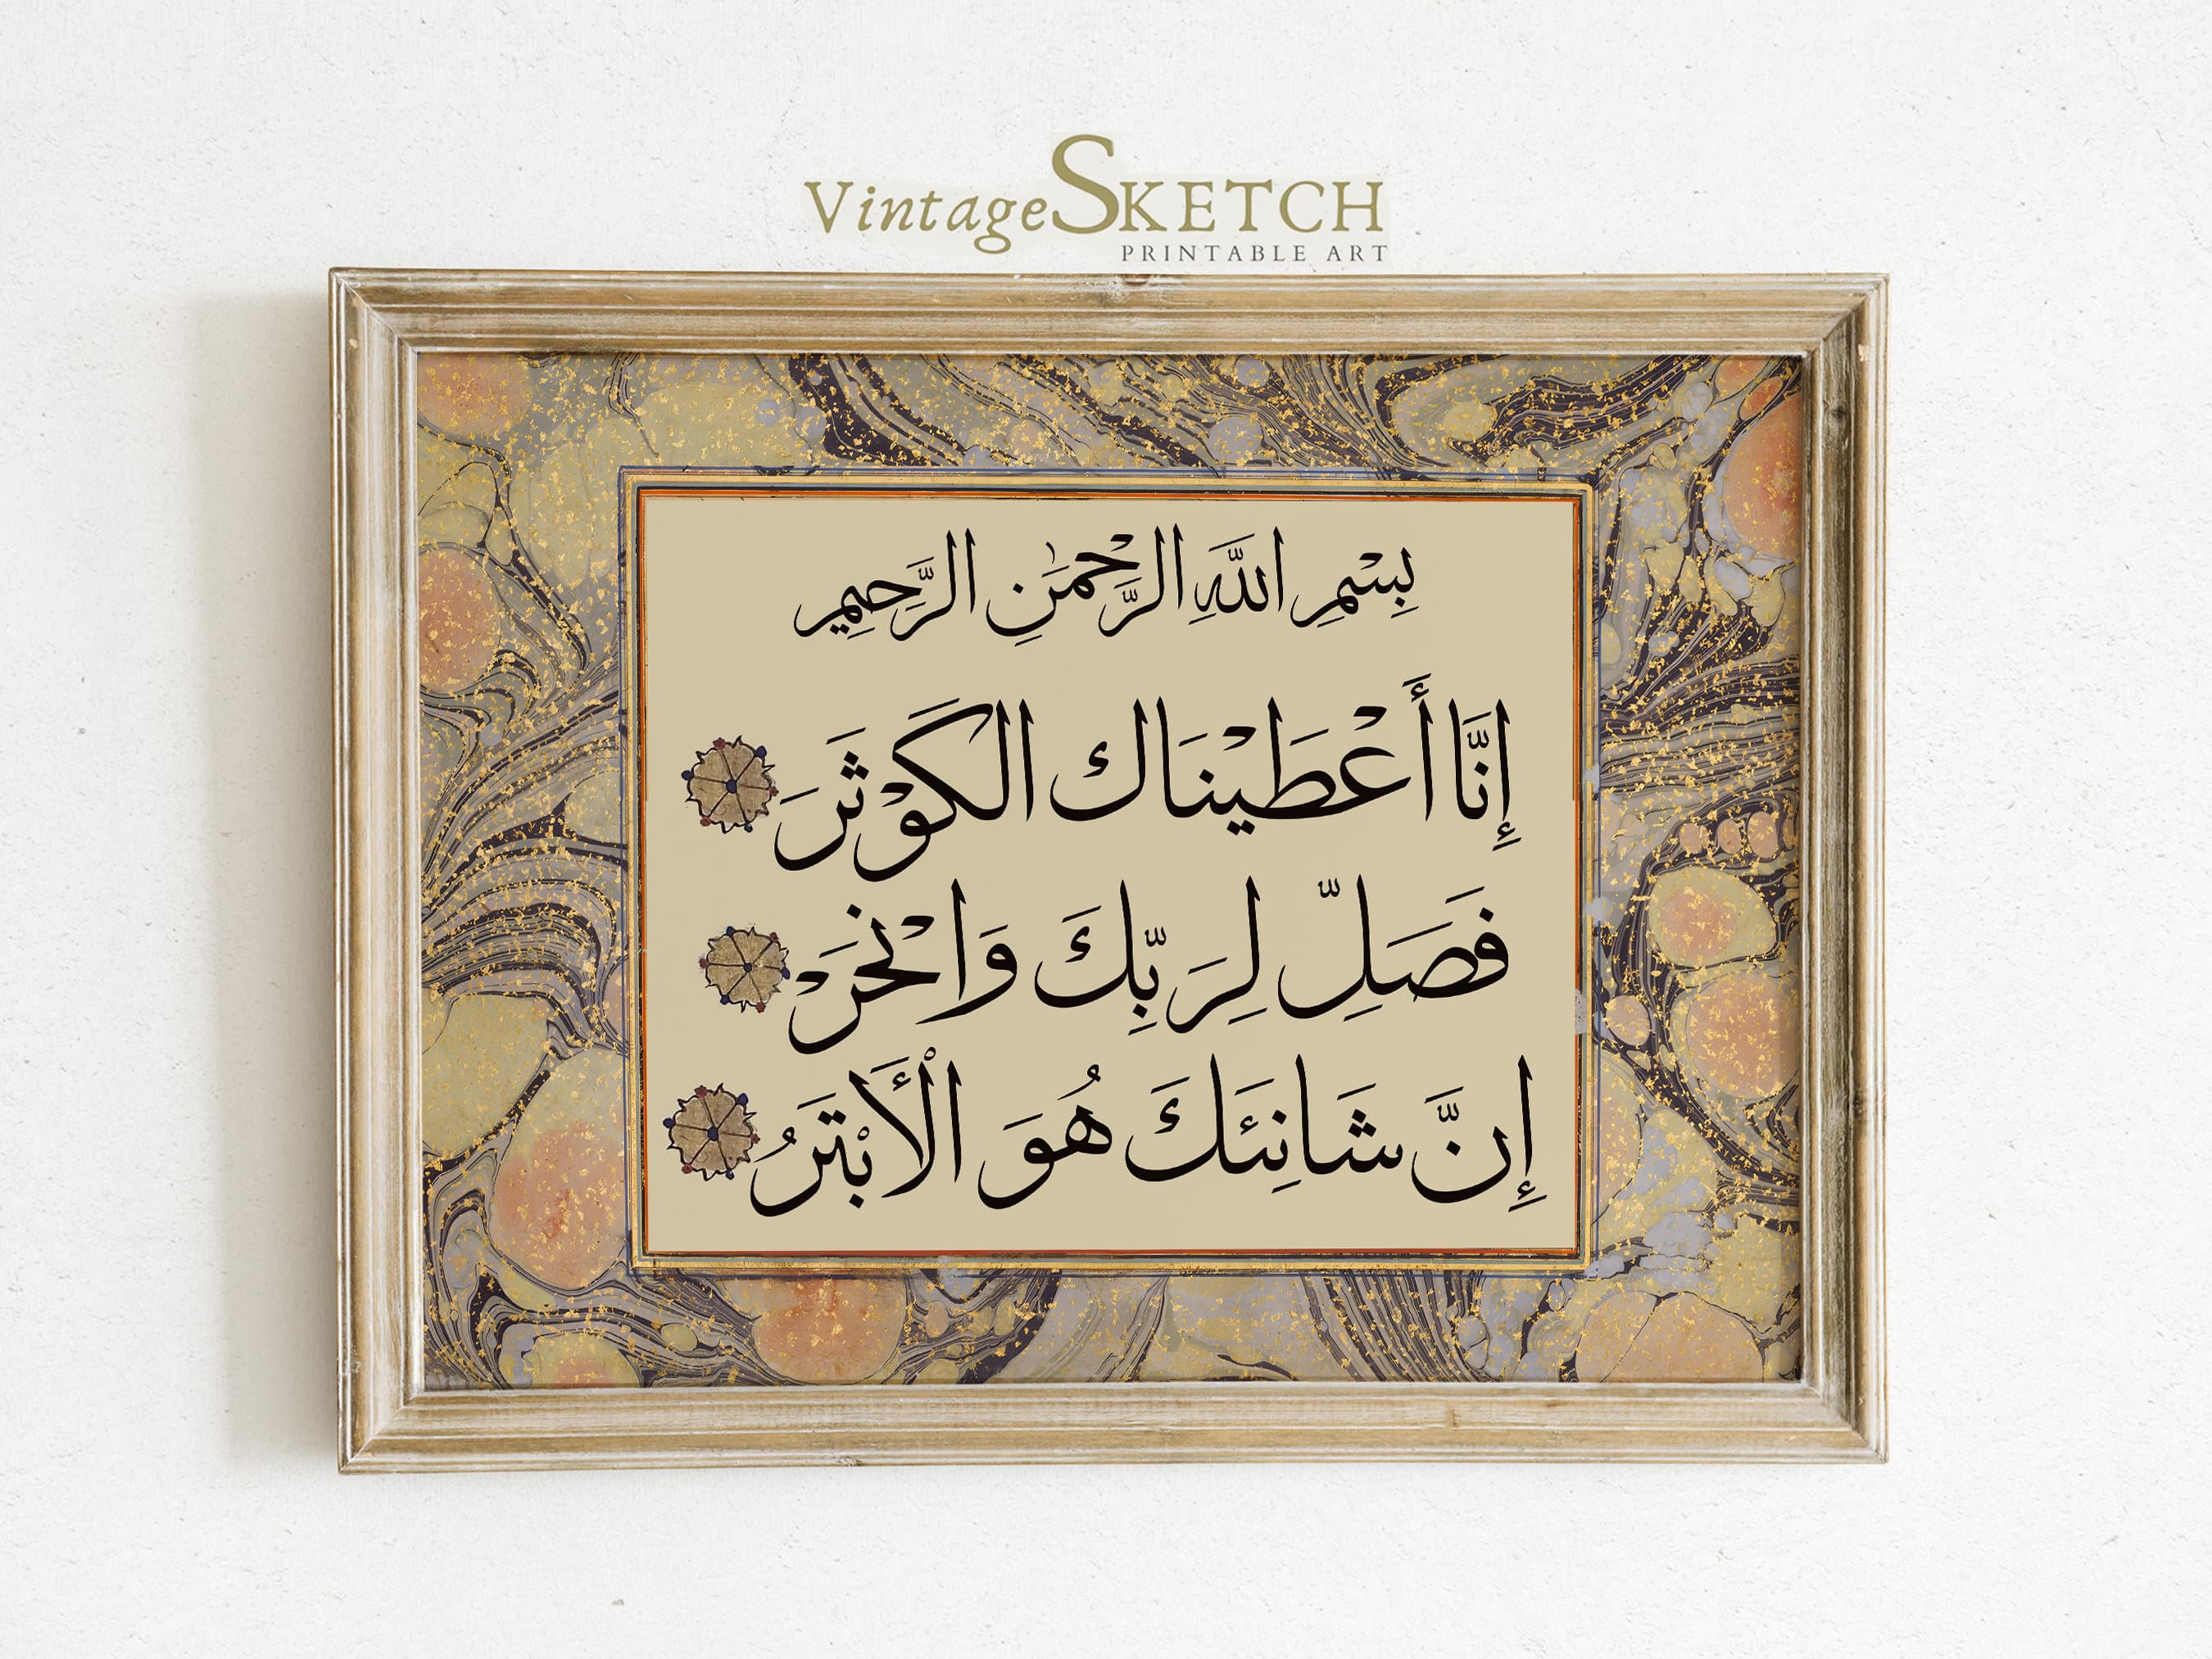 VintageSKETCH
PRINTABLE ART
بِسْمِ اللَّهِ الرَّحْمَٰنِ الرَّحِيمِ
إِنَّا أَعْطَيْنَاك الْكَوْثَرَ
فَصَلِّ لِرَبِّكَ وَانْحَرْ
إِنَّ شَانِئَكَ هُوَ الْأَبْتَرُ